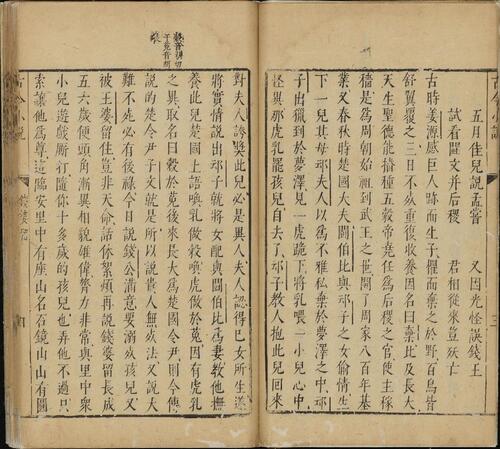 古今小說
五月佳兒說孟嘗　又因光怪誤錢王
試看闞文并后稷　君相從來豈死亡
古時姜源感巨人跡而生子懼而棄之於野百鳥皆
舒翼覆之三日不死重復收養因名曰棄比及長大
天生聖德能播種五穀帝堯任為后稷之官使主稼
穡是為周朝始祖到武王之世開了周家八百年基
業又春秋時楚國大夫鬬伯比與邧子之女偷情生
下一兒其母邧夫人以為不雅私棄於夢澤之中邧
子出獵到於夢澤見一虎跪下將乳喂一小兒心中
怪異那虎乳罷孩兒自去了邧子教人抱此兒回來
對夫人誇獎此兒必是異人夫人認得己女所生遂
將實情說出邧子就將女配與鬬伯比為妻教他撫
養此兒楚國土語喚乳做穀喚虎做於菟因有虎乳
之異取名曰穀於菟後來長大為楚國令尹則今傳
說的楚令尹子文就是所以說貴人無死法又說大
難不死必有後祿今日說錢公滿意要溺死孩兒又
被王婆留住豈非天命話休絮煩再說錢婆留長成
五六歲便頭角漸異相貌雄偉膂力非常與里中眾
小兒遊戲厮打隨你十多歲的孩兒也弄他不過只
索讓他為尊這臨安里中有座山名石鏡山山有圓
古今小說